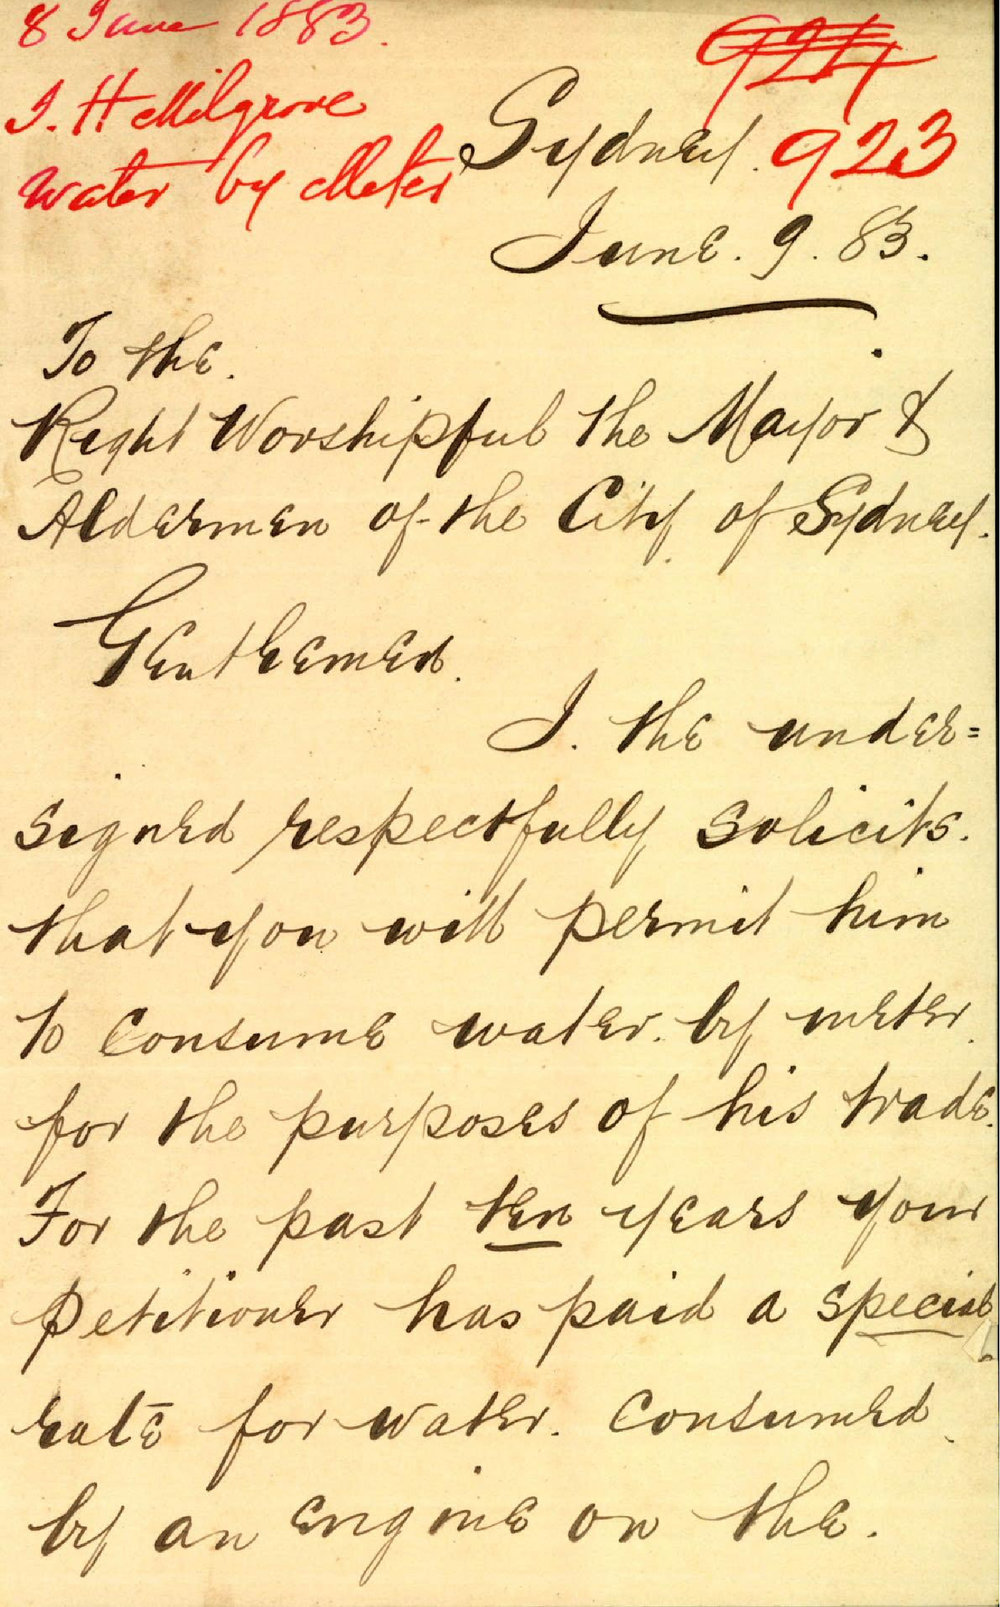 8 June 1883.
J. H Milgrove
Water by Meter
924
923
Sydney.
June. 9. 83.
To the.
Right Worshipful the Mayor &
Aldermen of the City of Sydney.
Gentlemen.
I. the under=
signed respectfully solicits.
that you will permit him
to consume water. by meter.
for the purposes of his trade.
For the past ten years your
petitioner has paid a special
rate for water. consumed
by an engine on the.